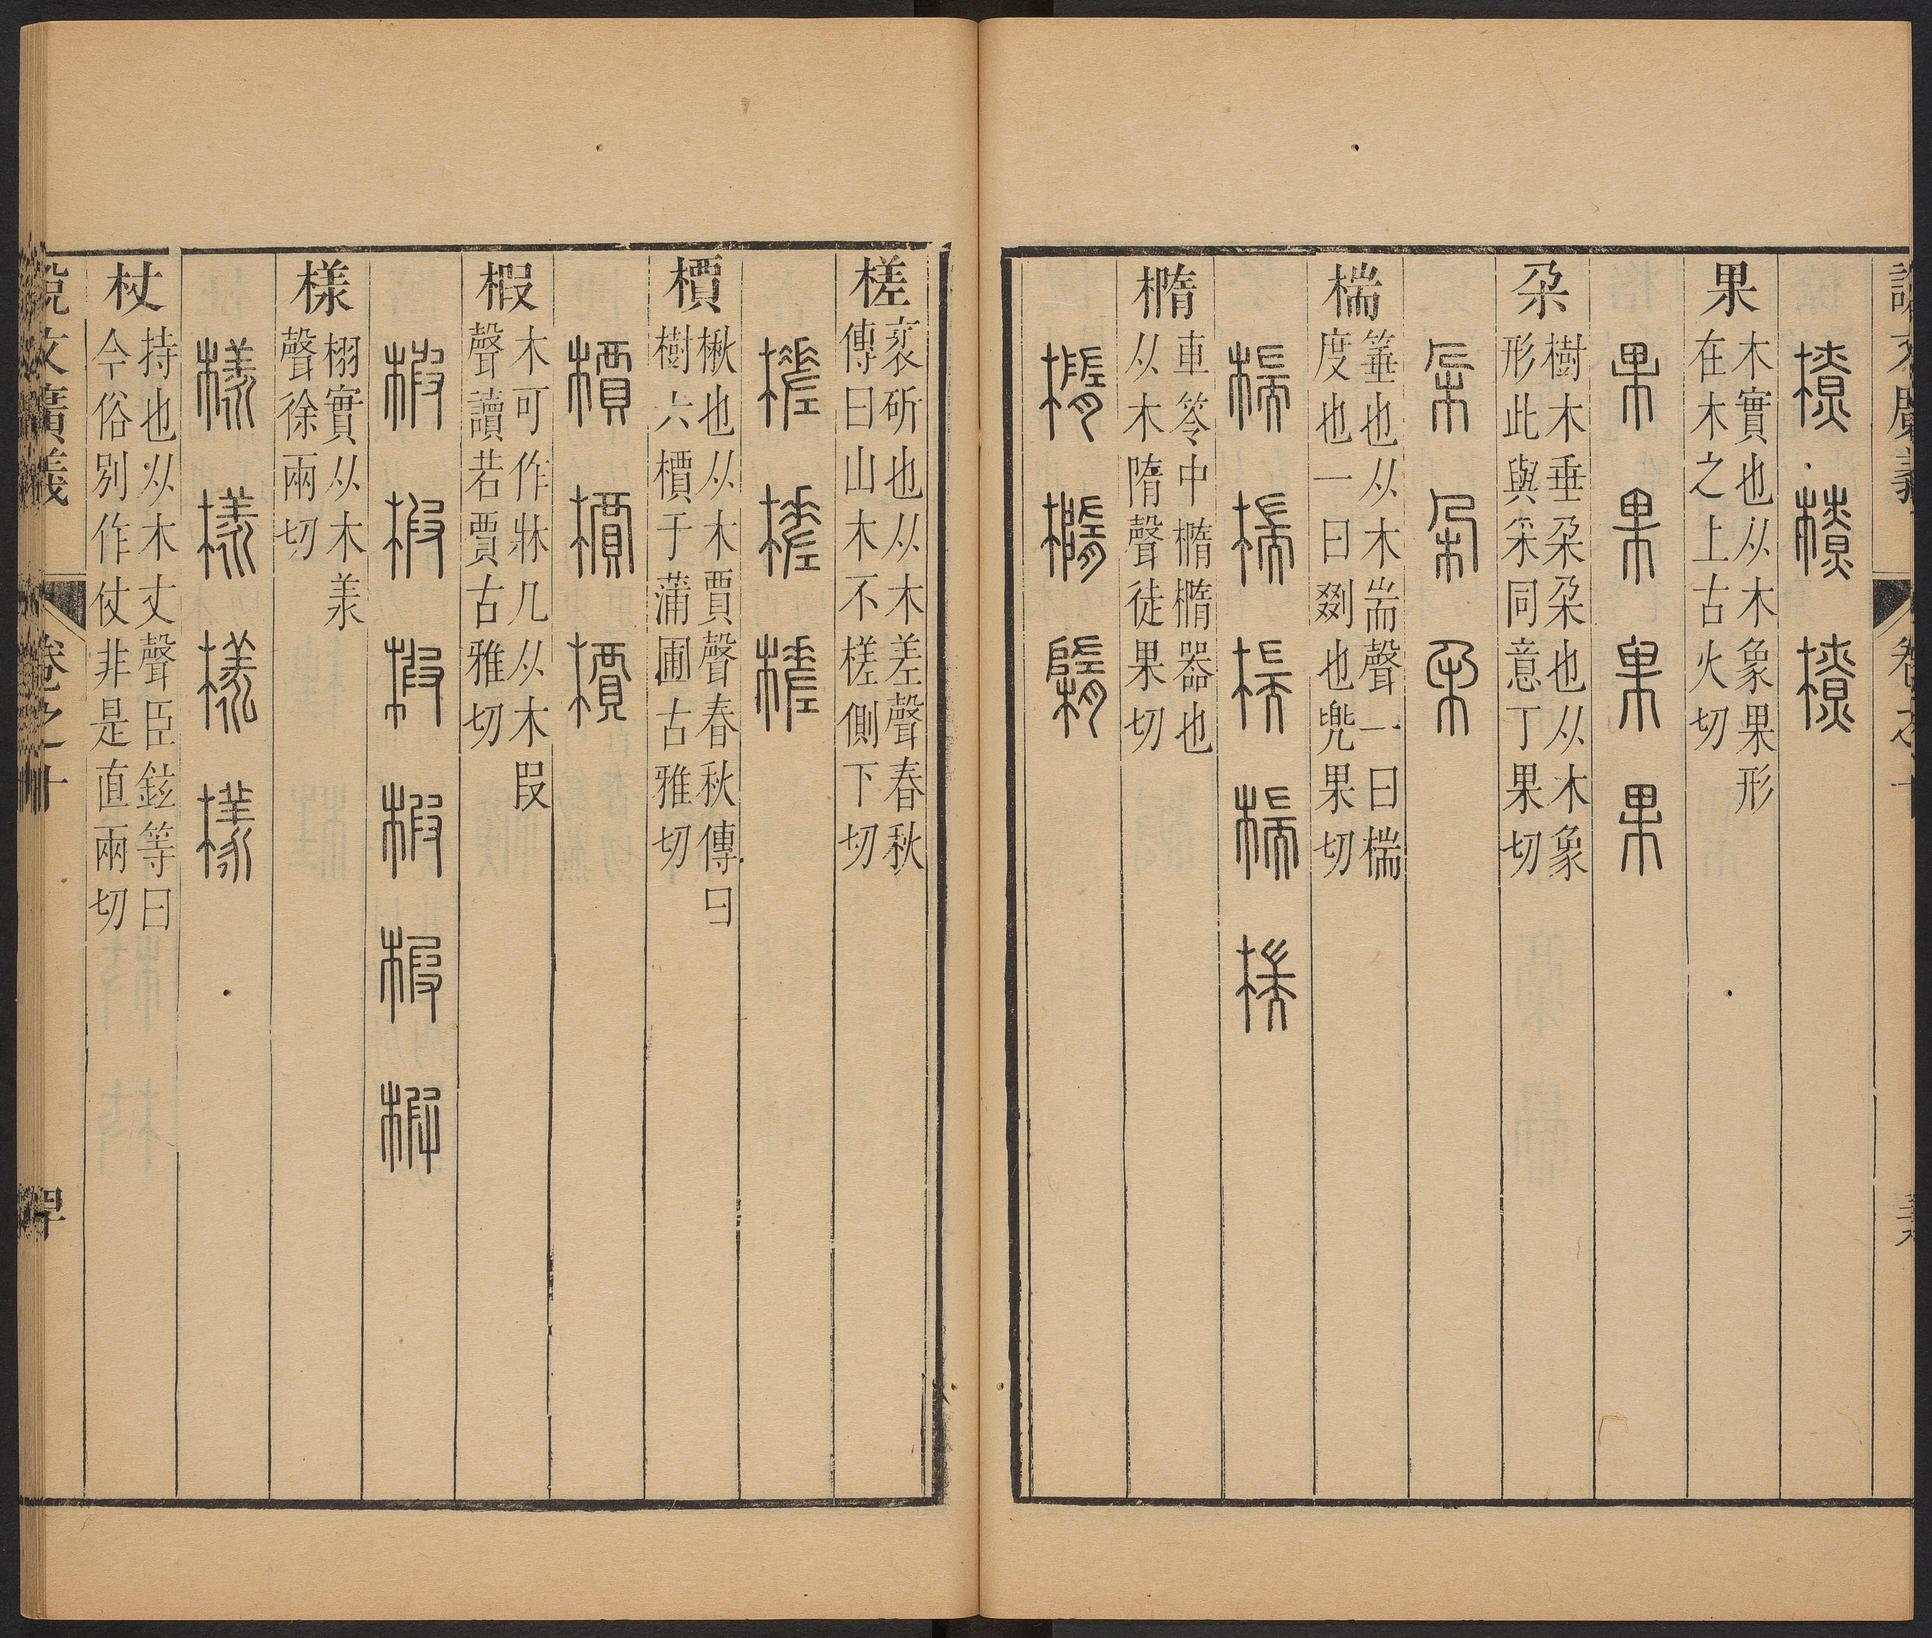 說文廣義 卷之十
橑 橑 橑
果 木實也从木象果形
在木之上古火切
果 果 果 果
朶 樹木垂朶朶也从木象
形此與采同意丁果切
朶 朶 朶
椯 箠也从木耑聲一曰椯
度也一曰剟也兜果切
椯 椯 椯 椯 椯
橢 車笭中橢橢器也
从木隋聲徒果切
橢 橢 橢
槎 衺斫也从木差聲春秋
傳曰山木不槎側下切
槎 槎 槎
檟 楸也从木賈聲春秋傳曰
樹六檟于蒲圃古雅切
檟 檟 檟
椵 木可作牀几从木叚
聲讀若賈古雅切
椵 椵 椵 椵 椵 椵
樣 栩實从木羕
聲徐兩切
樣 樣 樣 樣
杖 持也从木丈聲臣鉉等曰
今俗別作仗非是直兩切
說文廣義 卷之十